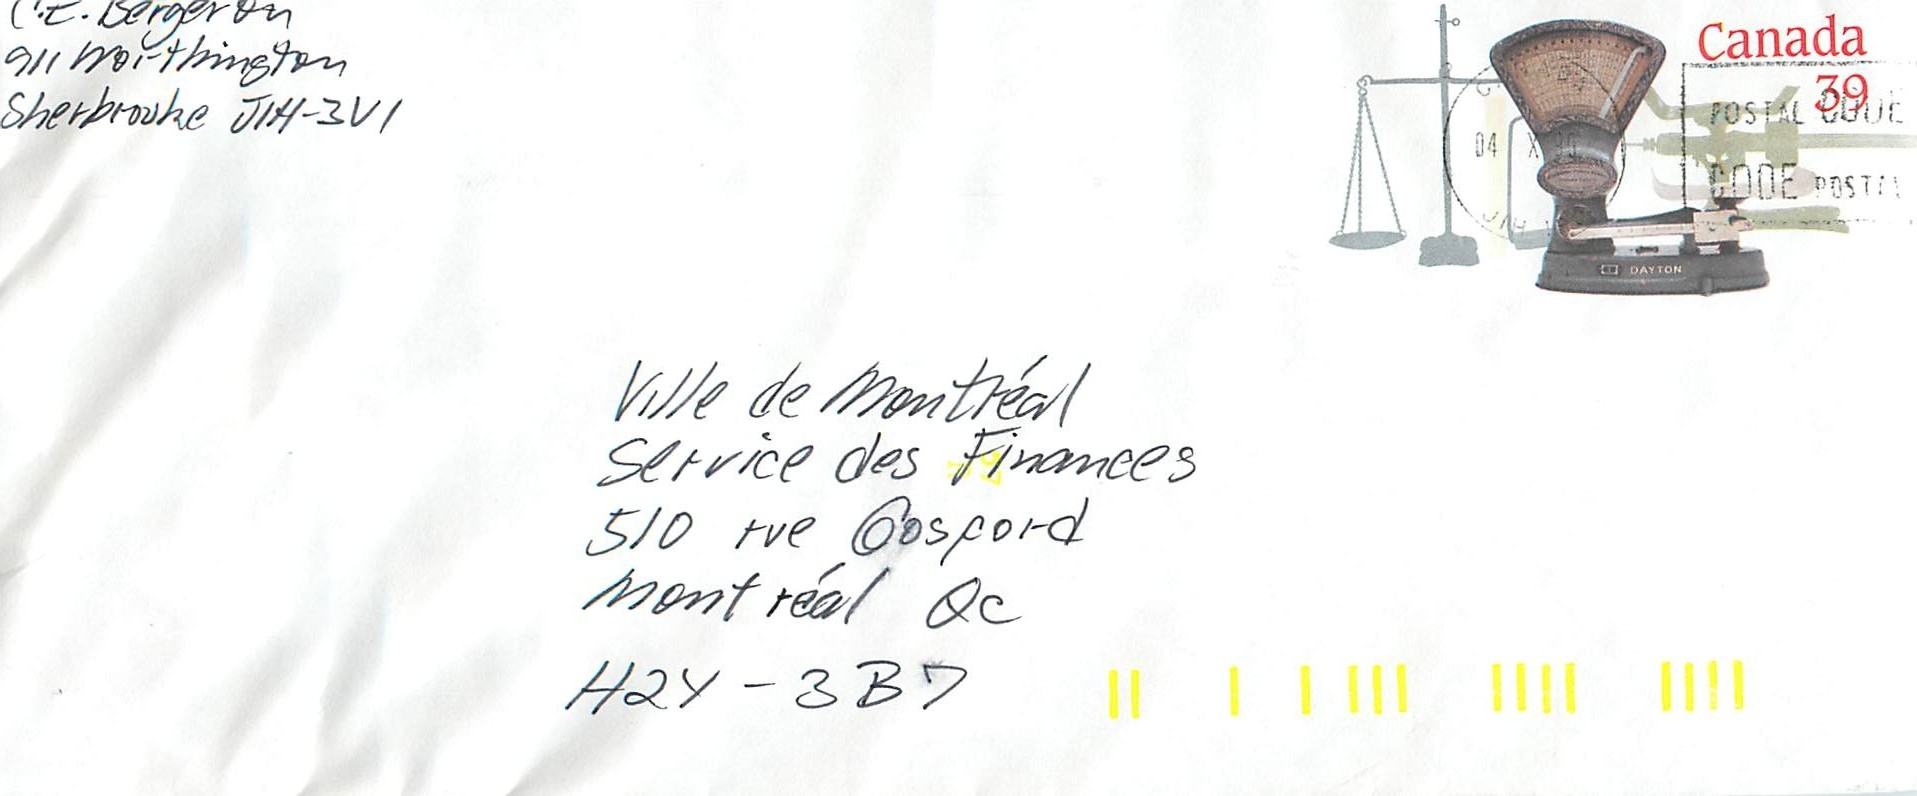 C.E. Bergeron
911 Worthington
Sherbrooke J1H-3V1
Canada
39
POSTAL CODE
CODE POSTAL
04 X 90
J1H
DAYTON
Ville de Montréal
Service des Finances
510 rue Gosford
Montréal Qc
H2Y-3B7